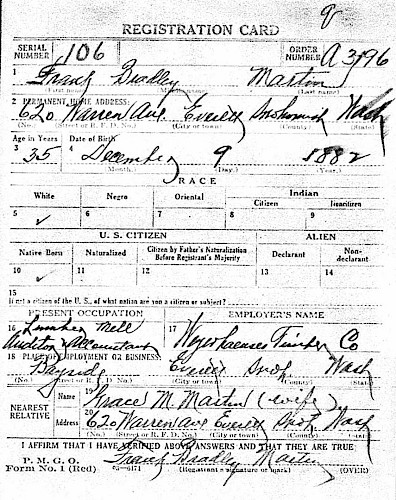 REGISTRATION CARD
SERIAL NUMBER 106 ORDER NUMBER A 3596
1 Frank Bradley Martin
(First name) (Middle name) (Last name)
2 PERMANENT HOME ADDRESS:
620 Warren Ave Everett Snohomish Wash
(No.) (Street or R. F. D. No.) (City or town) (County) (State)
Age in Years Date of Birth
3 35 4 December 9 1882
(Month.) (Day.) (Year.)
RACE
White Negro Oriental Indian
Citizen Noncitizen
5 ✓ 6 7 8 9
U. S. CITIZEN ALIEN
Native Born Naturalized Citizen by Father's Naturalization Before Registrant's Majority Declarant Non-declarant
10 ✓ 11 12 13 14
15
If not a citizen of the U. S., of what nation are you a citizen or subject?
PRESENT OCCUPATION EMPLOYER'S NAME
16 Lumber Mill 17 Weyerhaeuser Timber Co
Auditor & Accountant
18 PLACE OF EMPLOYMENT OR BUSINESS:
Bayside Everett Snoh Wash
(No.) (Street or R. F. D. No.) (City or town) (County) (State)
NEAREST RELATIVE
Name 19 Grace M. Martin (wife)
Address 20 620 Warren Ave Everett Snoh Wash
(No.) (Street or R. F. D. No.) (City or town) (County) (State)
I AFFIRM THAT I HAVE VERIFIED ABOVE ANSWERS AND THAT THEY ARE TRUE
P. M. G. O.
Form No. 1 (Red) Frank Bradley Martin
(Registrant's signature or mark) (OVER)